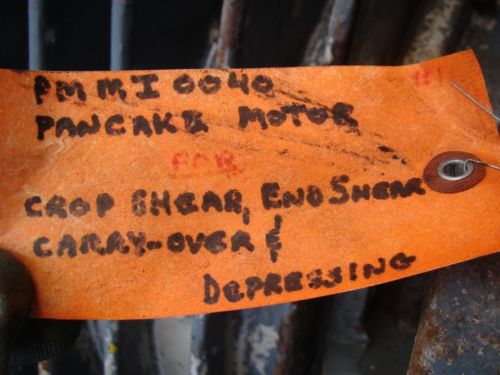 PMMI0040
PANCAKE MOTOR
FOR
CROP SHEAR, END SHEAR
CARRY-OVER &
DEPRESSING